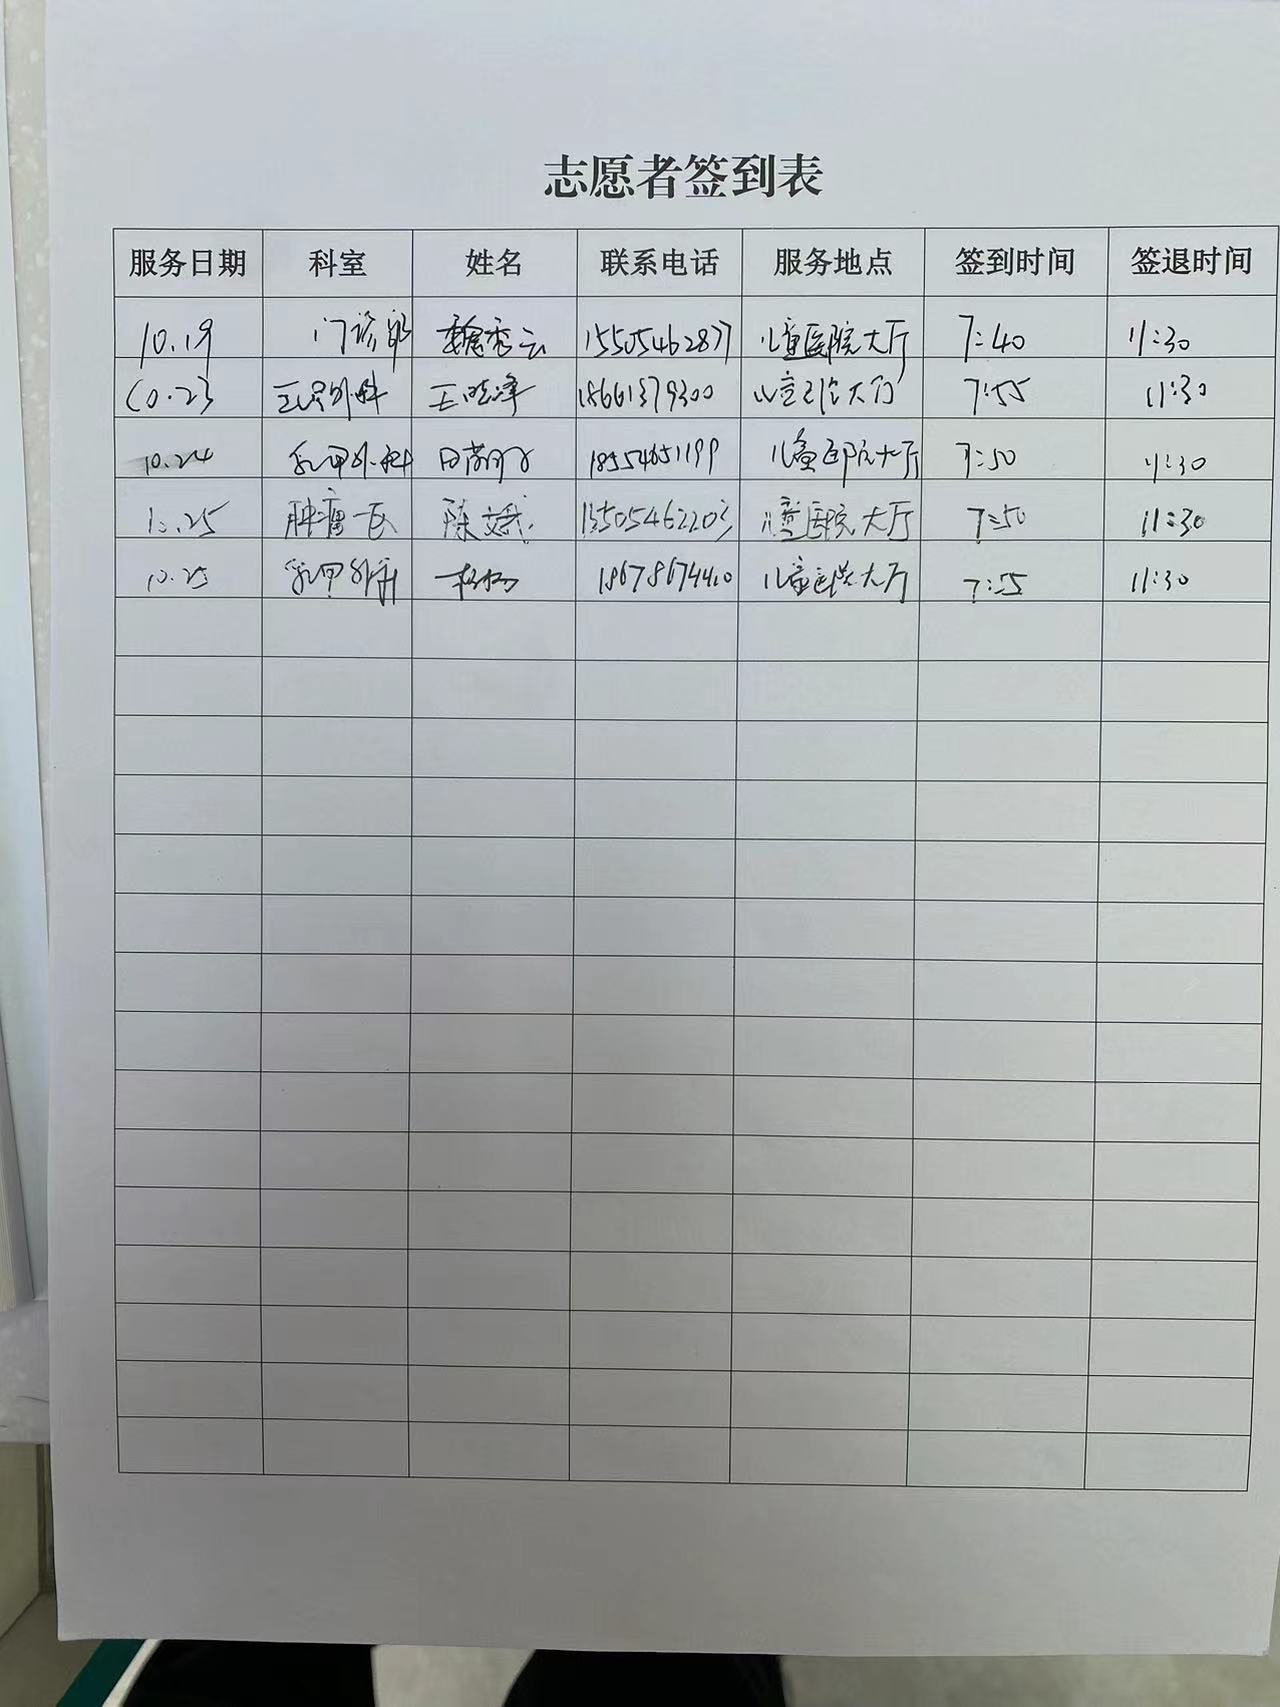 志愿者签到表
服务日期 科室 姓名 联系电话 服务地点 签到时间 签退时间
10.19 门诊部 魏秀云 15505462877 儿童医院大厅 7:40 11:30
10.23 外科 王晓泽 18661379300 儿童大厅 7:55 11:30
10.24 乳甲外科 田 18554651199 儿童医院大厅 7:50 11:30
10.25 肿瘤一区 陈娥 13505462203 儿童医院大厅 7:50 11:30
10.25 乳甲外科 杨杨 18678674410 儿童医院大厅 7:55 11:30